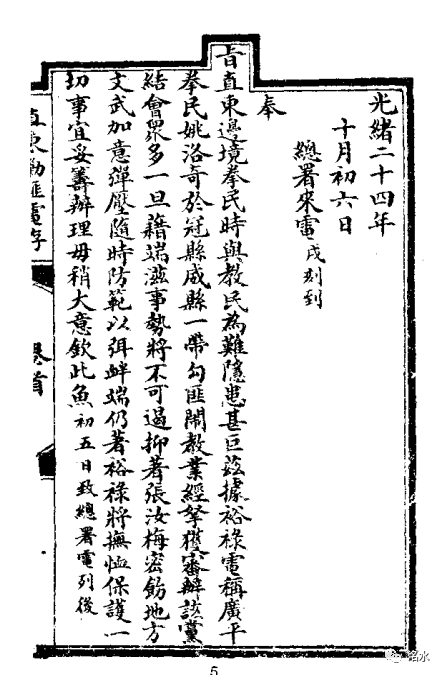 光緒二十四年
十月初六日
總署來電戌刻到
奉
旨直東邊境拳民時與教民為難隱患甚巨茲據裕祿電稱廣平
拳民姚洛奇於冠縣威縣一帶勾匪鬧教業經拏獲審辦該黨
結會眾多一旦藉端滋事勢將不可遏抑著張汝梅密飭地方
文武加意彈壓隨時防範以弭衅端仍著裕祿將撫恤保護一
切事宜妥籌辦理毋稍大意欽此魚初五日致總署電列後
直東勦匪電存
卷首
5